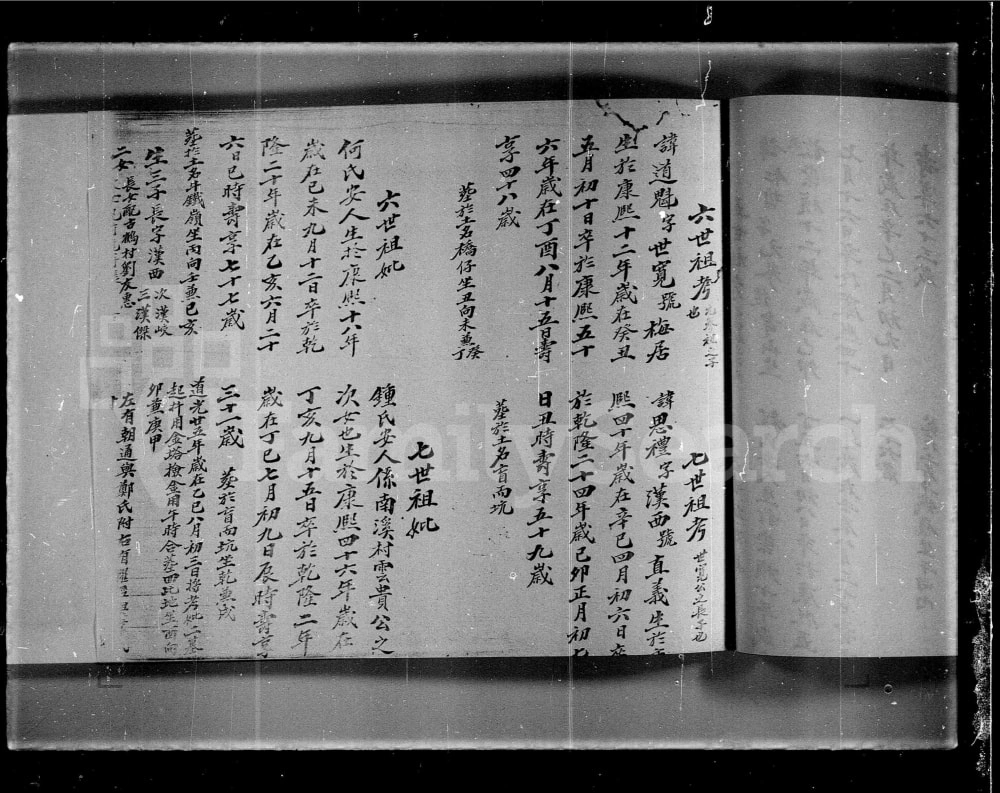 六世祖考
諱道魁字世寬號梅居
生於康熙十二年歲在癸丑
五月初十日卒於康熙五十
六年歲在丁酉八月十五日壽
享四十八歲
葬於土名橋仔坐丑向未兼癸丁
六世祖妣
何氏安人生於康熙十八年
歲在己未九月十二日卒於乾
隆二十年歲在乙亥六月二十
六日巳時壽享七十七歲
葬於土名斗鐵嶺坐丙向壬兼巳亥
生三子長字漢西 次漢岐 三漢傑
二女 長女配古鶴村劉友惠
七世祖考 世寬公之長子也
諱思禮字漢西號直義生於
熙四十年歲在辛巳四月初六日卒
於乾隆二十四年歲己卯正月初七
日丑時壽享五十九歲
葬於土名盲両坑
七世祖妣
鍾氏安人係南溪村雲貴公之
次女也生於康熙四十六年歲在
丁亥九月十五日卒於乾隆二年
歲在丁巳七月初九日辰時壽享
三十一歲 葬於盲両坑坐乾兼戌
道光廿五年歲在乙巳八月初三日將考妣二墓
起扦用金塔檢金用午時合葬四比地坐酉向
卯兼庚甲
左有朝通與鄭氏附
familysearch